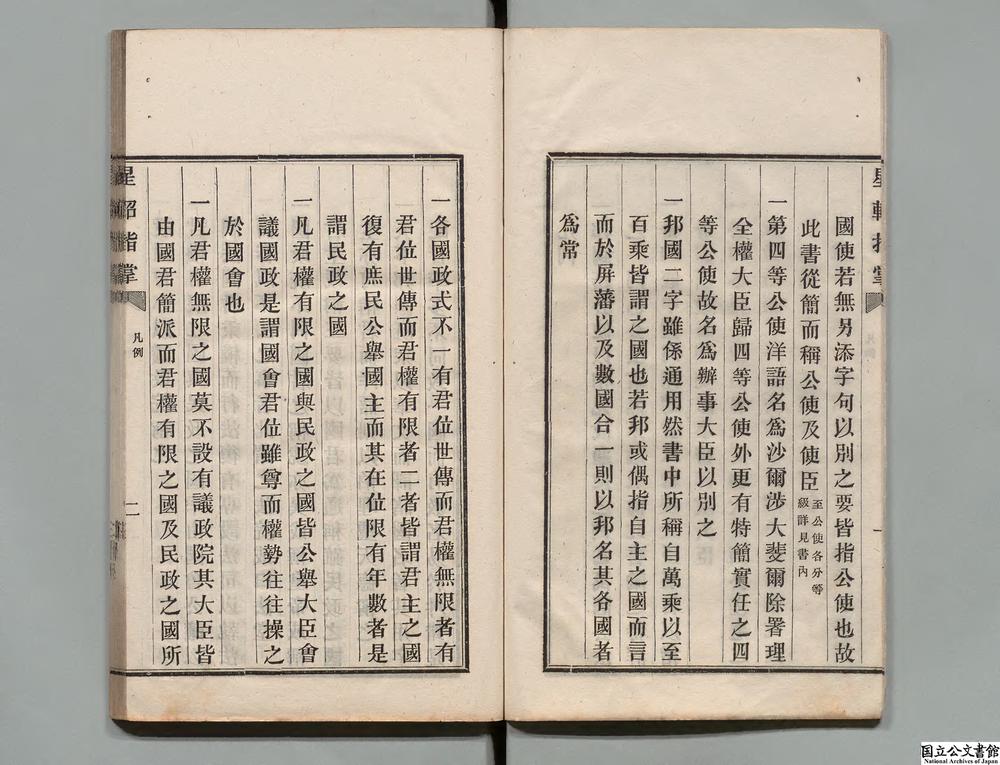 國使若無另添字句以別之要皆指公使也故
此書從簡而稱公使及使臣至公使各分等
級詳見書內
一第四等公使洋語名爲沙爾涉大斐爾除署理
全權大臣歸四等公使外更有特簡實任之四
等公使故名爲辦事大臣以別之
一邦國二字雖係通用然書中所稱自萬乘以至
百乘皆謂之國也若邦或偶指自主之國而言
而於屏藩以及數國合一則以邦名其各國者
爲常
一各國政式不一有君位世傳而君權無限者有
君位世傳而君權有限者二者皆謂君主之國
復有庶民公舉國主而其在位限有年數者是
謂民政之國
一凡君權有限之國與民政之國皆公舉大臣會
議國政是謂國會君位雖尊而權勢往往操之
於國會也
一凡君權無限之國莫不設有議政院其大臣皆
由國君簡派而君權有限之國及民政之國所
星軺指掌
凡例
二
国立公文書館
National Archives of Japan